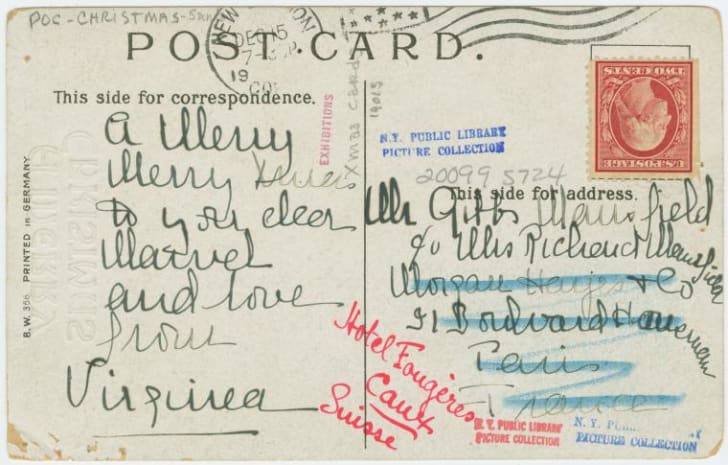 POC-CHRISTMAS-
POST CARD.
NEW
DEC 15
19
This side for correspondence.
EXHIBITIONS
Xmas cards
B.W. 356. PRINTED in GERMANY.
A Merry
Merry Xmas
to you dear
Marvel
and love
from
Virginia
N.Y. PUBLIC LIBRARY
PICTURE COLLECTION
20099 5724
TWO CENTS
U.S. POSTAGE
This side for address.
Mr Gibbs Mansfield
c/o Mrs Richard Mansfield
Morgan Harjes & Co
31 Boulevard Haussmann
Paris
France
Hotel Fougères
Caux
Suisse
N.Y. PUBLIC LIBRARY
PICTURE COLLECTION
N.Y. PU
PICTURE COLLECTION